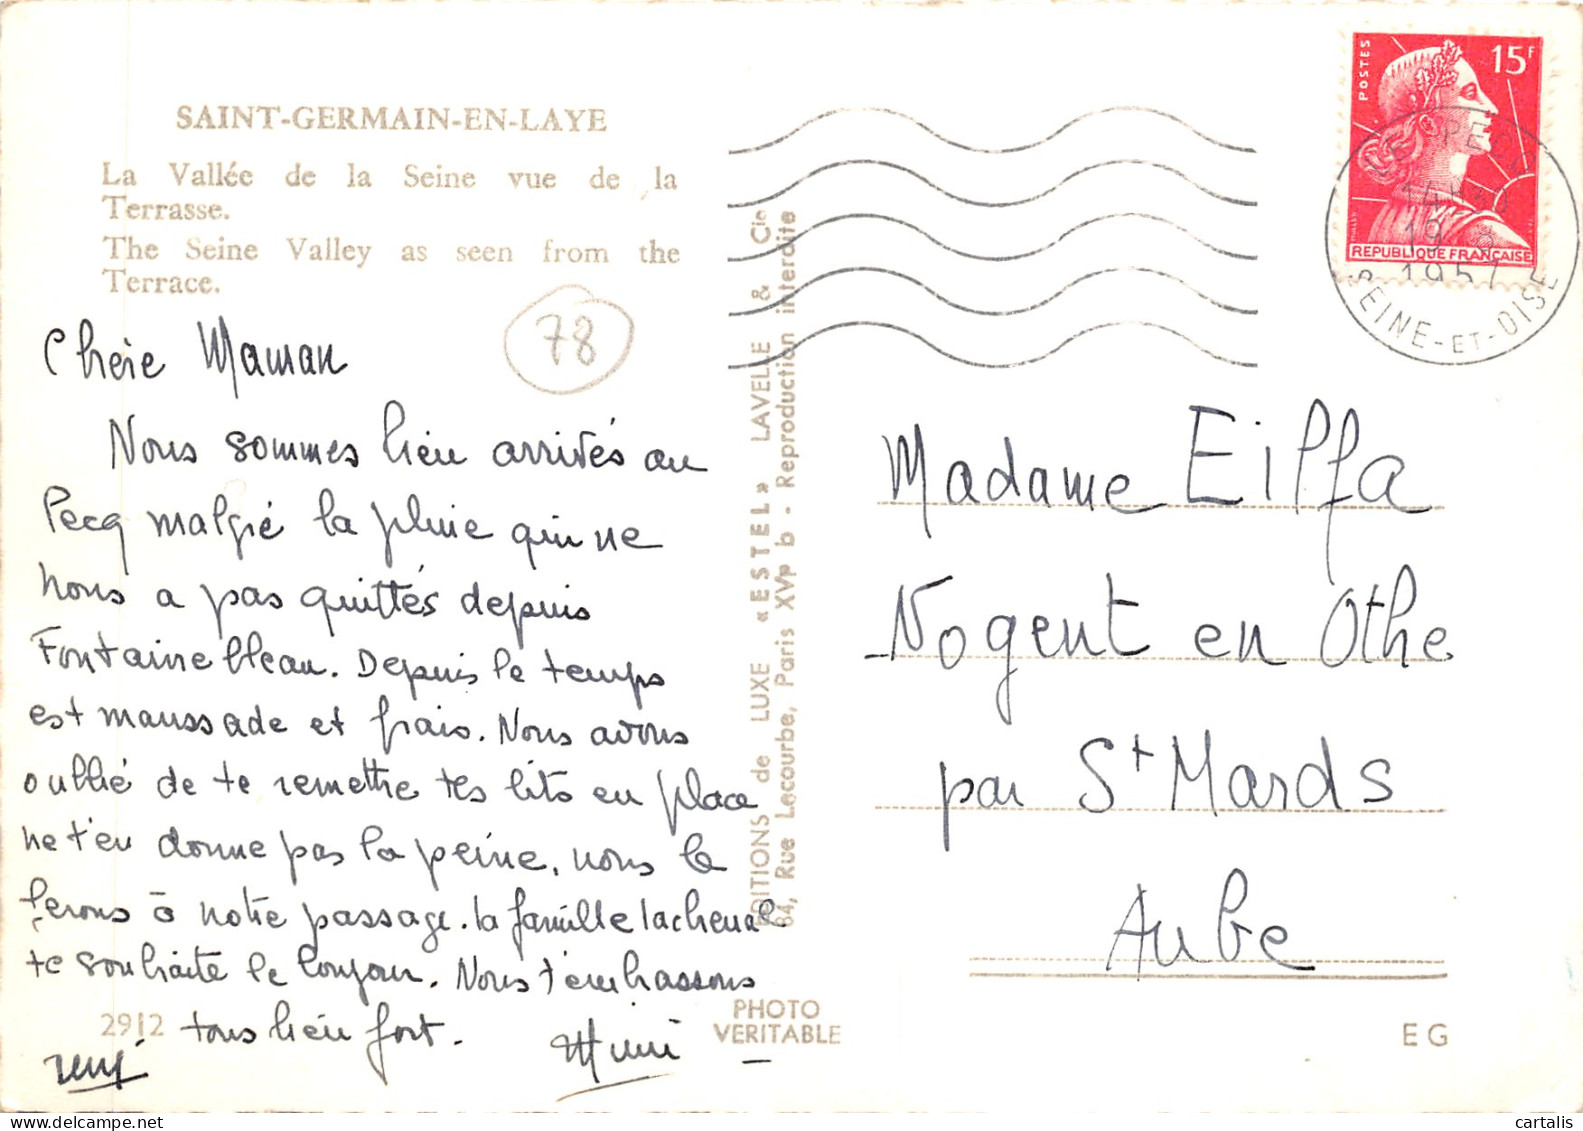 SAINT-GERMAIN-EN-LAYE
La Vallée de la Seine vue de la
Terrasse.
The Seine Valley as seen from the
Terrace.
78
Chère Maman
Nous sommes bien arrivés au
Pecq malgré la pluie qui ne
nous a pas quittés depuis
Fontainebleau. Depuis le temps
est maussade et frais. Nous avons
oublié de te remettre tes lits en place
ne t'en donne pas la peine, nous le
ferons à notre passage. la famille Lacheval
te souhaite le bonjour. Nous t'embrassons
tous bien fort.
Mimi
rené
2912
EDITIONS de LUXE «ESTEL» LAVELLE & Cie
64, Rue Lecourbe, Paris XVe b - Reproduction interdite
PHOTO
VERITABLE
POSTES
15F
REPUBLIQUE FRANÇAISE
LE PECQ
14H30
19
1957
SEINE-ET-OISE
Madame Eiffa
Nogent en Othe
par St Mards
Aube
EG
cartalis
www.delcampe.net